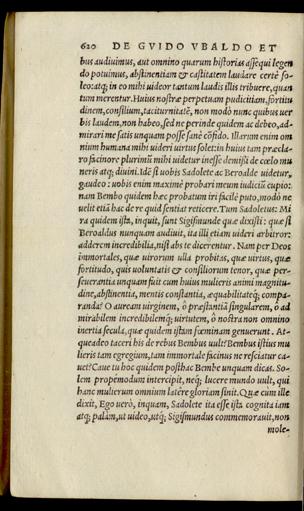 620 DE GVIDO VBALDO ET
bus audiuimus, aut omnino quarum historias assequi legen
do potuimus, abstinentiam & castitatem laudare certè so-
leo: atq; in eo mihi uideor tantum laudis illis tribuere, quan
tum merentur. Huius nostræ perpetuam pudicitiam, fortitu
dinem, consilium, taciturnitatē, non modò nunc quibus uer
bis laudem, non habeo, sed ne perinde quidem ac debeo, ad-
mirari me satis unquam posse sanè cōfido. Illarum enim om
nium humana mihi uideri uirtus solet: in huius tam præcla-
ro facinore plurimū mihi uidetur inesse demissi de cœlo mu
neris atq; diuini. Idē si uobis Sadolete ac Beroalde uidetur,
gaudeo: uobis enim maximè probari meum iudiciū cupio:
nam Bembo quidem hæc probatum iri facilè puto, modò ne
uelit etiā hac de re quid sentiat reticere. Tum Sadoletus: Mi
ra quidem ista, inquit, sunt Sigismunde quæ dixisti: quæ si
Beroaldus nunquam audiuit, ita illi etiam uideri arbitror:
adderem incredibilia, nisi abs te dicerentur. Nam per Deos
immortales, quæ uirorum ulla probitas, quæ uirtus, quæ
fortitudo, quis uoluntatis & consiliorum tenor, quæ per-
seuerantia unquam fuit cum huius mulieris animi magnitu-
dine, abstinentia, mentis constantia, æquabilitateq; compa-
randa? O auream uirginem, ô præstantiā singularem, ô ad
mirabilem incredibilemq; uirtutem, ô nostra non omnino
inertia secula, quæ quidem istam fœminam genuerunt. At-
que adeo taceri his de rebus Bembus uult? Bembus istius mu
lieris tam egregium, tam immortale facinus ne resciatur ca-
uet? Caue tu hoc quidem posthac Bembe unquam dicas. So-
lem propemodum intercipit, neq; lucere mundo uult, qui
hanc mulierum omnium latêre gloriam sinit. Quæ cùm ille
dixit, Ego uerò, inquam, Sadolete ita esse ista cognita iam
atq; palàm, ut uideo, utq; Sigismundus commemorauit, non
mole-